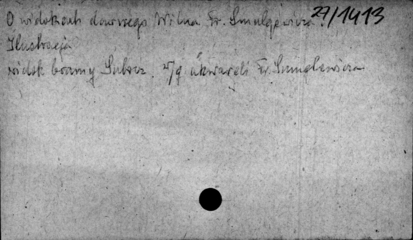 O widokach dawnego Wilna Fr. Smuglewicza 27/1913
Ilustracja
widok bramy Subocz w/g akwareli Fr. Smuglewicza